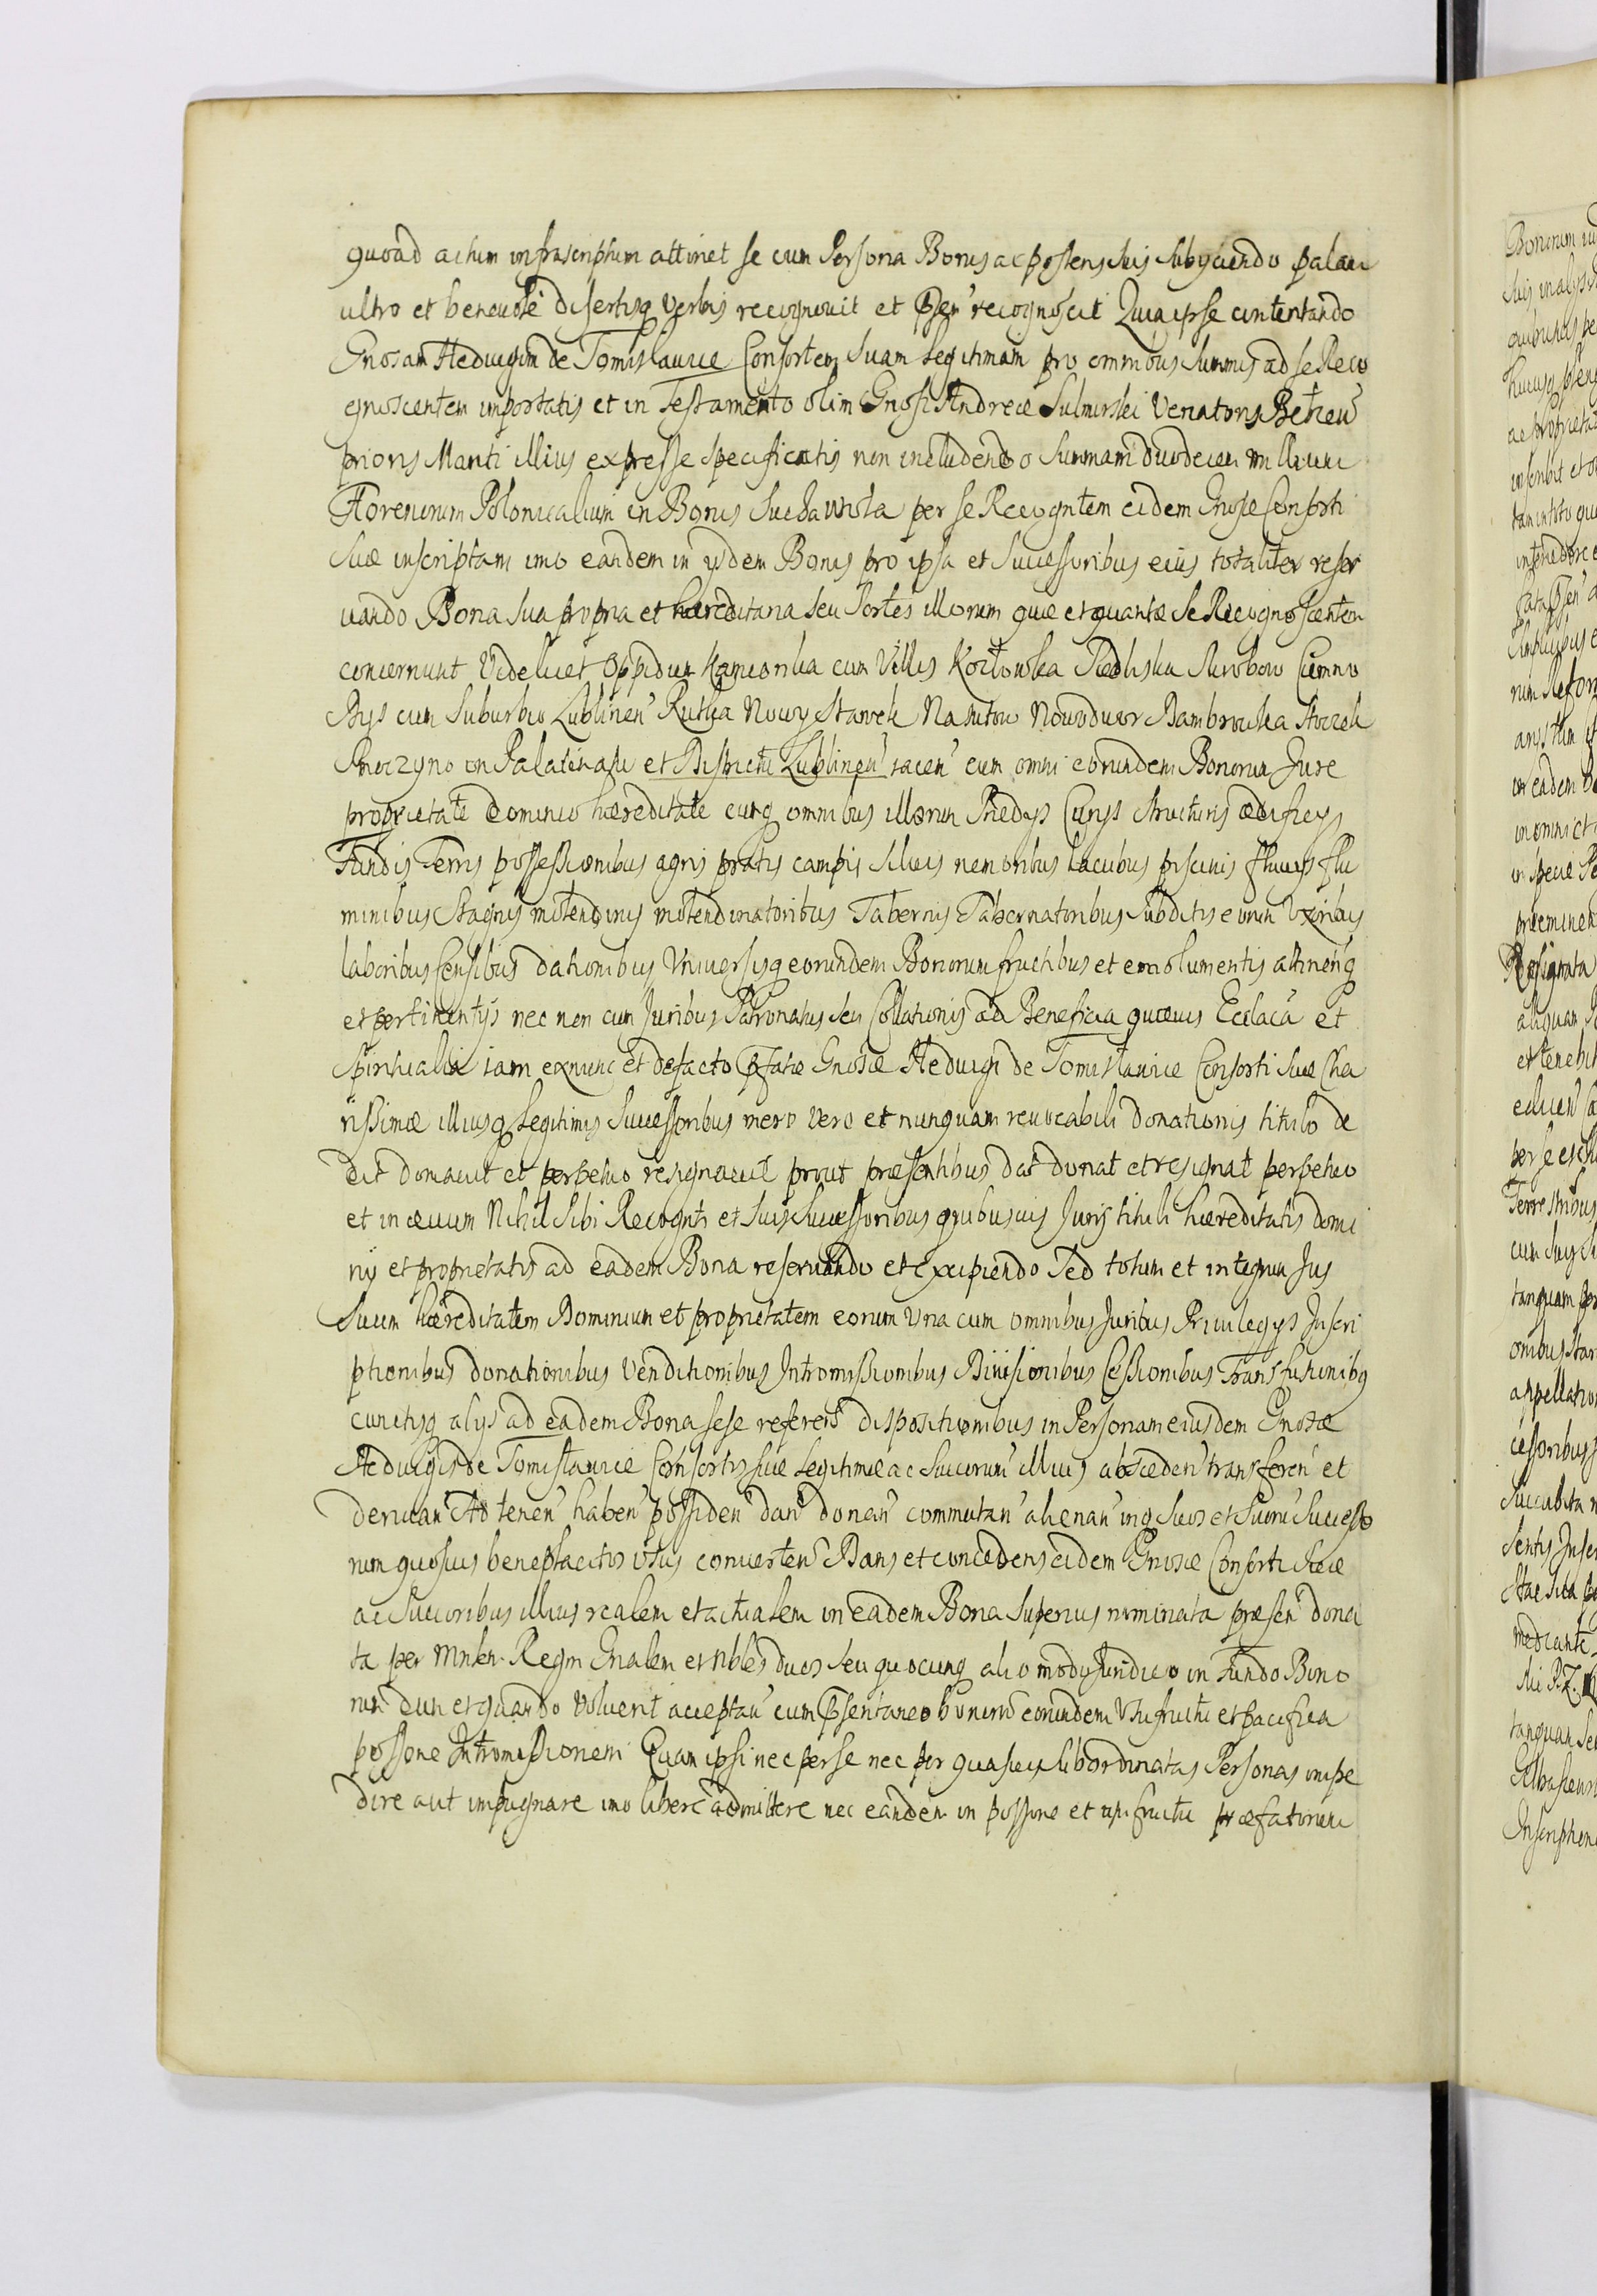 quoad actum infrascriptum attinet se cum Persona Bonis ac posteris suis subyciendo palam
ultro et beneuole disertisq verbis recognouit et psen recognoscit Quia ipse contentando
Gnosam Heduigim de Tomislauice Consortem Suam Legitimam pro omnibus summis ad se Reco
gnoscentem importatis et in Testamento olim Gnosi Andreæ Sulmirski Venatoris
prioris Mariti illius expresse specificatis non includendo Summam duodecim millium
Florenorum Polonicalium in Bonis Sucha Wola per se Recogntem eidem Gnosæ Consorti
Suæ inscriptam imo eandem in ysdem Bonis pro ipsa et Successoribus eius totaliter reser
uando Bona sua propria et hæreditaria seu sortes illorum quæ et quantæ se Recognoscentem
concernunt Videlicet Oppidum Kamionka cum Villis Kozłowka Siedliska Skrobow Ciemno
cum Suburbio Lublinen Rutka Nowy Stawek Nasutow Nowodwor Dambrowka Stoczek
in Palatinatu et Districtu Lublinen iacen cum omni eorundem Bonorum Jure
proprietate dominio hæreditate cumq omnibus illorum Prædys Curys structuris ædificys
Fundis Terris possessionibus agris pratis campis siluis nemoribus lacubus piscinis fluuys flu
minibus Stagnis molendinis molendinatoribus Tabernis Tabernatoribus Subditis eorum
laboribus Censibus dationibus Vniuersisq eorundem Bonorum fructibus et emolumentis attinenq
et pertinentijs nec non cum Juribus Patronatus seu Collationis ad Beneficia quæuis Eccliaca et
Spiritualia iam exnunc et defacto pfatæ Gnosæ Heduigi de Tomislauice Consorti suæ Cha
rissimæ illiusq Legitimis Successoribus mero vero et nunquam reuocabili donationis titulo de
dit donauit et perpetuo resignauit prout præsentibus dat donat et resignat perpetuo
et in æuum Nihil Sibi Recognti et Suis Successoribus quibusuis Juris tituli hæreditatis domi
nij et proprietatis ad eadem Bona reseruando et Excipiendo Sed totum et integrum Jus
Suum hæreditatem Dominium et proprietatem eorum Vna cum omnibus Juribus Priuilegys Inscri
ptionibus donationibus Venditionibus Intromissionibus Diuisionibus Cessionibus Transfusionibq
cunctisq alys ad eadem Bona sese referen dispositionibus in Personam eiusdem Gnosæ
Heduigis de Tomislauice Consortis suæ Legitimæ ac Succorum illius transferen et
deriuan Ad tenen haben possiden dan donan commutan alienan inq suos et Suorum Successo
rum quosuis beneplacitos Vsus conuerten Dans et concedens eidem Gnosæ Consorti Suæ
ac Succoribus illius realem et actualem in eadem Bona Superius nominata præsen dona
ta per Mnlem Regm Gnalem et Nbles duos Seu quocunq alio modo Juridico in Fundo Bono
rum dum et quando Voluerit acceptan cum psentaneo eorundem Vsufructu et pacifica
possone Intromissionem Quam ipsi nec per se nec per quasuis subordinatas Personas impe
dire aut impugnare imo libere admittere nec eandem in possone et usufructu præfatorum